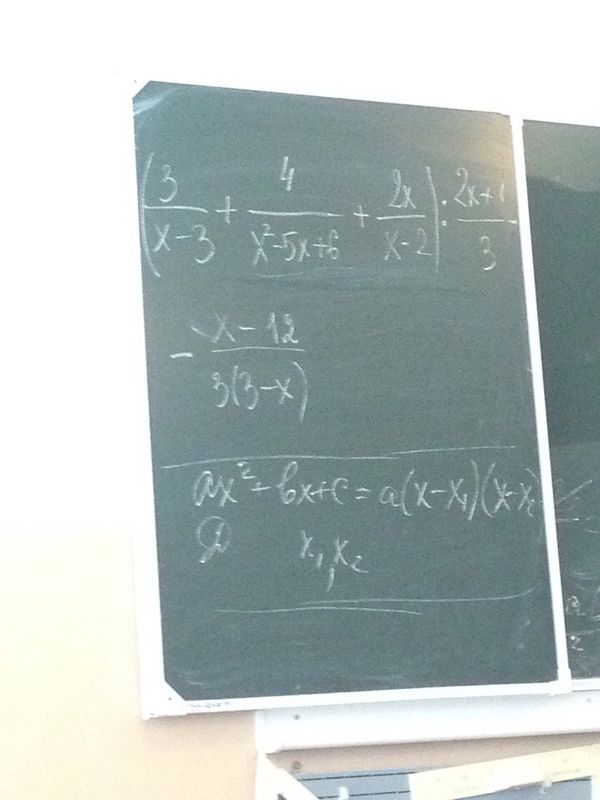 (3/(x-3) + 4/(x²-5x+6) + 2x/(x-2)) : (2x+1)/3 -
- (x-12)/(3(3-x))
ax²-bx+c = a(x-x₁)(x-x₂)
D x₁, x₂